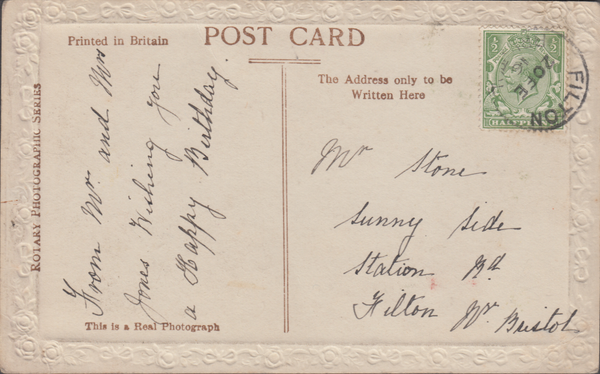 POST CARD
Printed in Britain
The Address only to be
Written Here
ROTARY PHOTOGRAPHIC SERIES
From Mr. and Mrs
Jones Wishing you
a Happy Birthday.
This is a Real Photograph
Mr Stone
Sunny Side
Station Rd
Filton Nr Bristol
FILTON
½
½
HALFPENNY